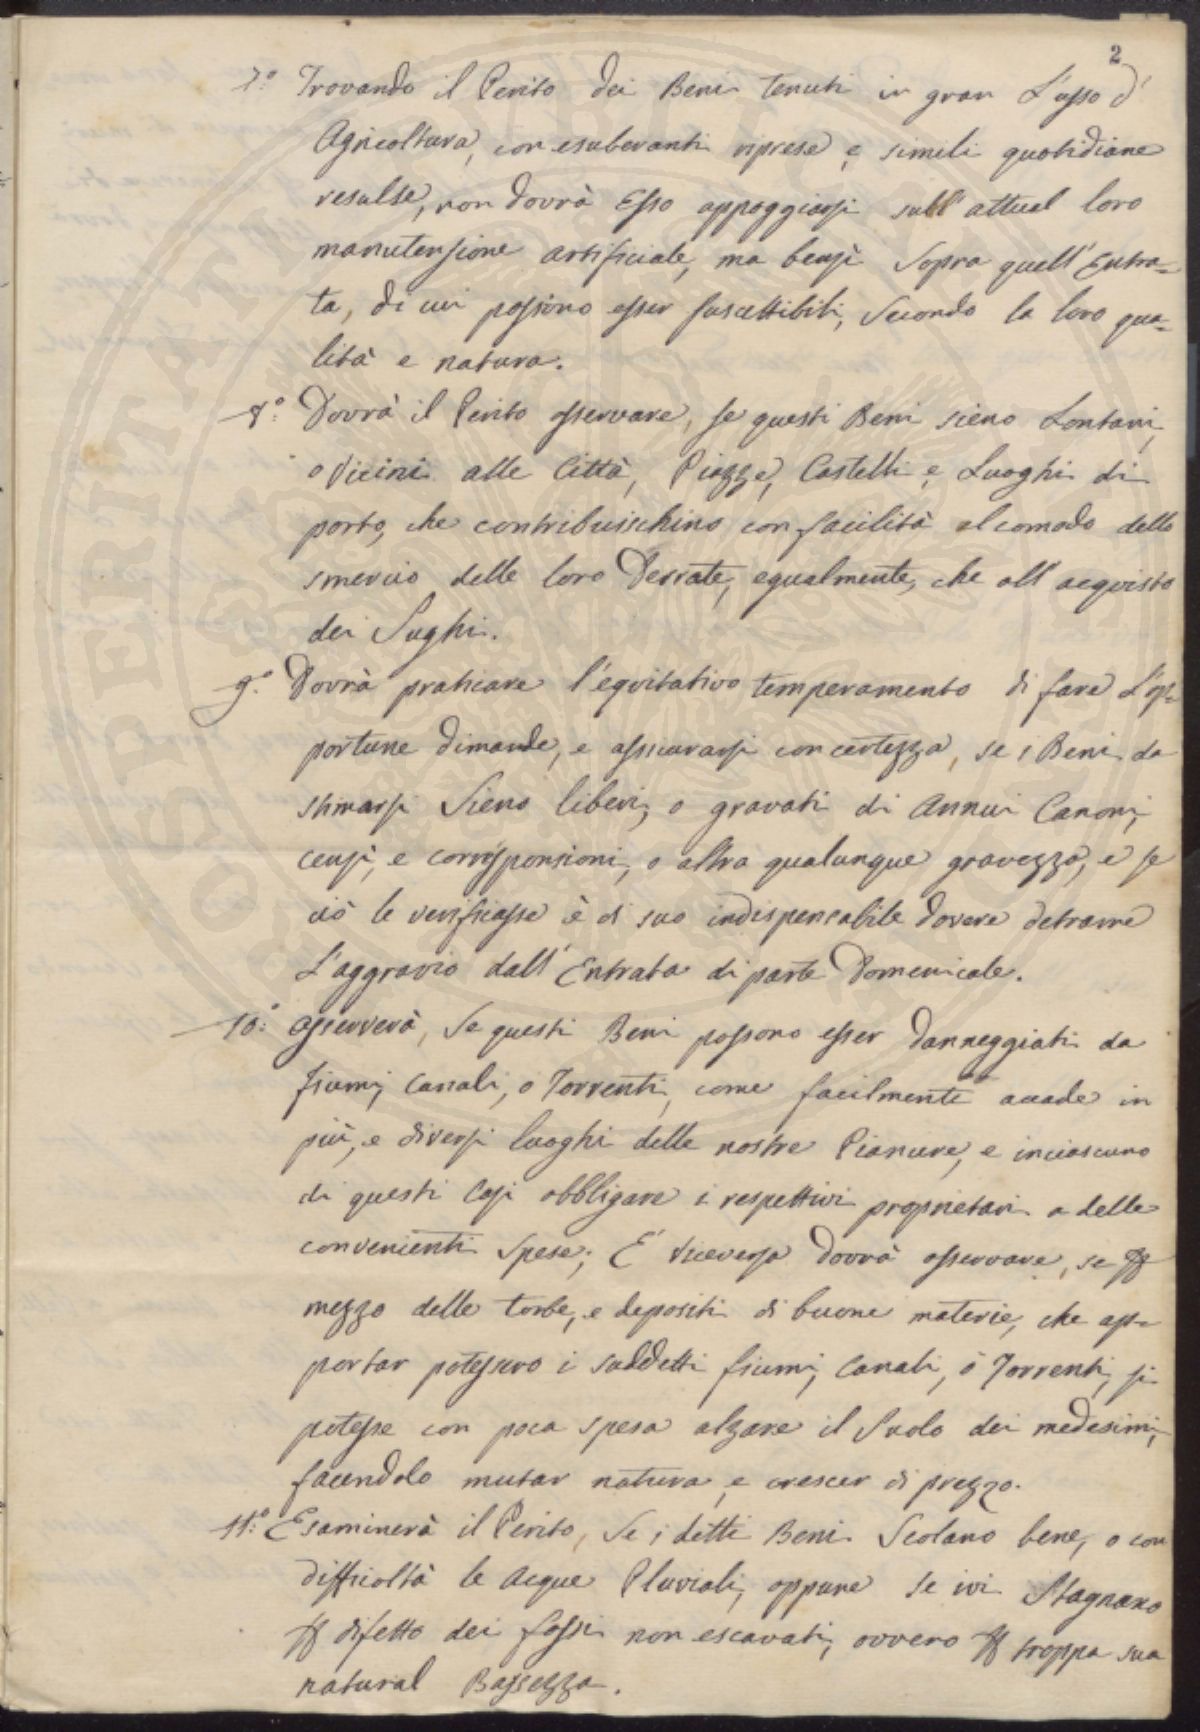 2
7.° Trovando il Perito dei Beni tenuti in gran Lusso d'
Agricoltura, con esuberanti riprese e simili quotidiane
resulse, non dovrà Esso appoggiarsi sull'attual loro
manutensione artificiale, ma bensì Sopra quell'Entra=
ta, di cui possino esser suscettibili, Secondo la loro qua=
lità e natura.
8.° Dovrà il Perito osservare, se questi Beni sieno Lontani,
o Vicini alle Città, Piazze, Castelli e Luoghi di
porto, che contribuischino con facilità al comodo dello
smercio delle loro Derrate, egualmente, che all'acquisto
dei Sughi.
9.° Dovrà praticare l'equitativo temperamento di fare L'op=
portune dimande, e assicurarsi con certezza, se i Beni da
stimarsi Sieno liberi, o gravati di Annui Canoni,
censi, e corrisponsioni, o altra qualunque gravezza, e se
ciò le verificasse è di suo indispensabile dovere detrarre
L'aggravio dall'Entrata di parte Domenicale.
10.° Osserverà, Se questi Beni possono esser danneggiati da
fiumi, Canali, o Torrenti, come facilmente accade in
più, e diversi luoghi delle nostre Pianure, e in ciascuno
di questi Casi obbligare i respettivi proprietari a delle
convenienti Spese; E' viceversa dovrà osservare, se ꝑ
mezzo delle torbe, e depositi di buone materie, che ap=
portar potessero i suddetti fiumi, Canali, ò Torrenti, si
potesse con poca spesa alzare il Suolo dei medesimi,
facendolo mutar natura, e crescer di prezzo.
11.° Esaminerà il Perito, Se i detti Beni Scolano bene, o con
difficoltà le Acque Pluviali, oppure se ivi Stagnano
ꝑ difetto dei fossi non escavati, ovvero ꝑ troppa sua
natural Bassezza.